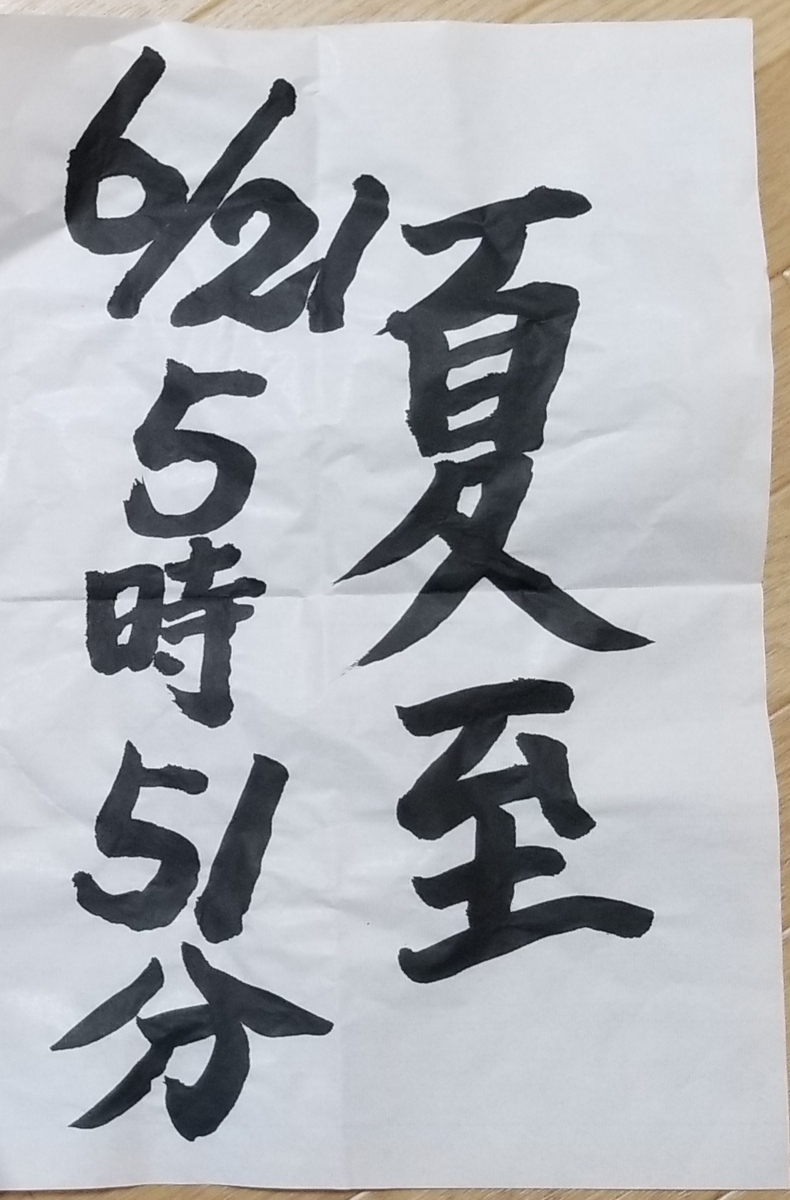 夏至
6/21 5時51分